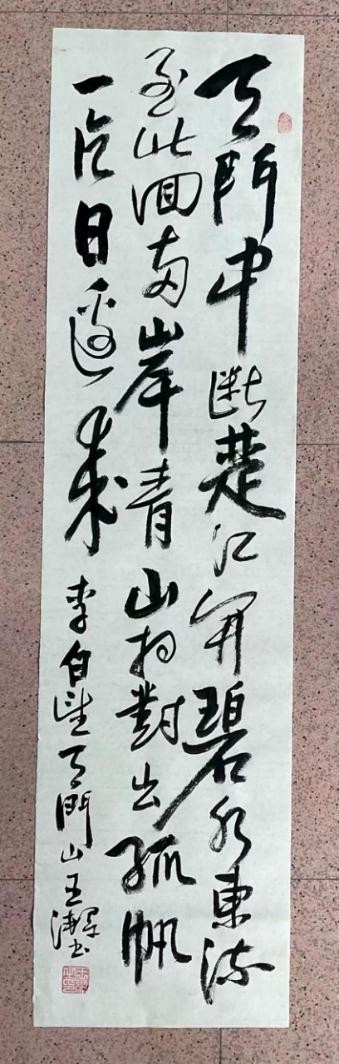 天門中斷楚江開碧水東流
至此回兩岸青山相對出孤帆
一片日邊來
李白望天門山王 書